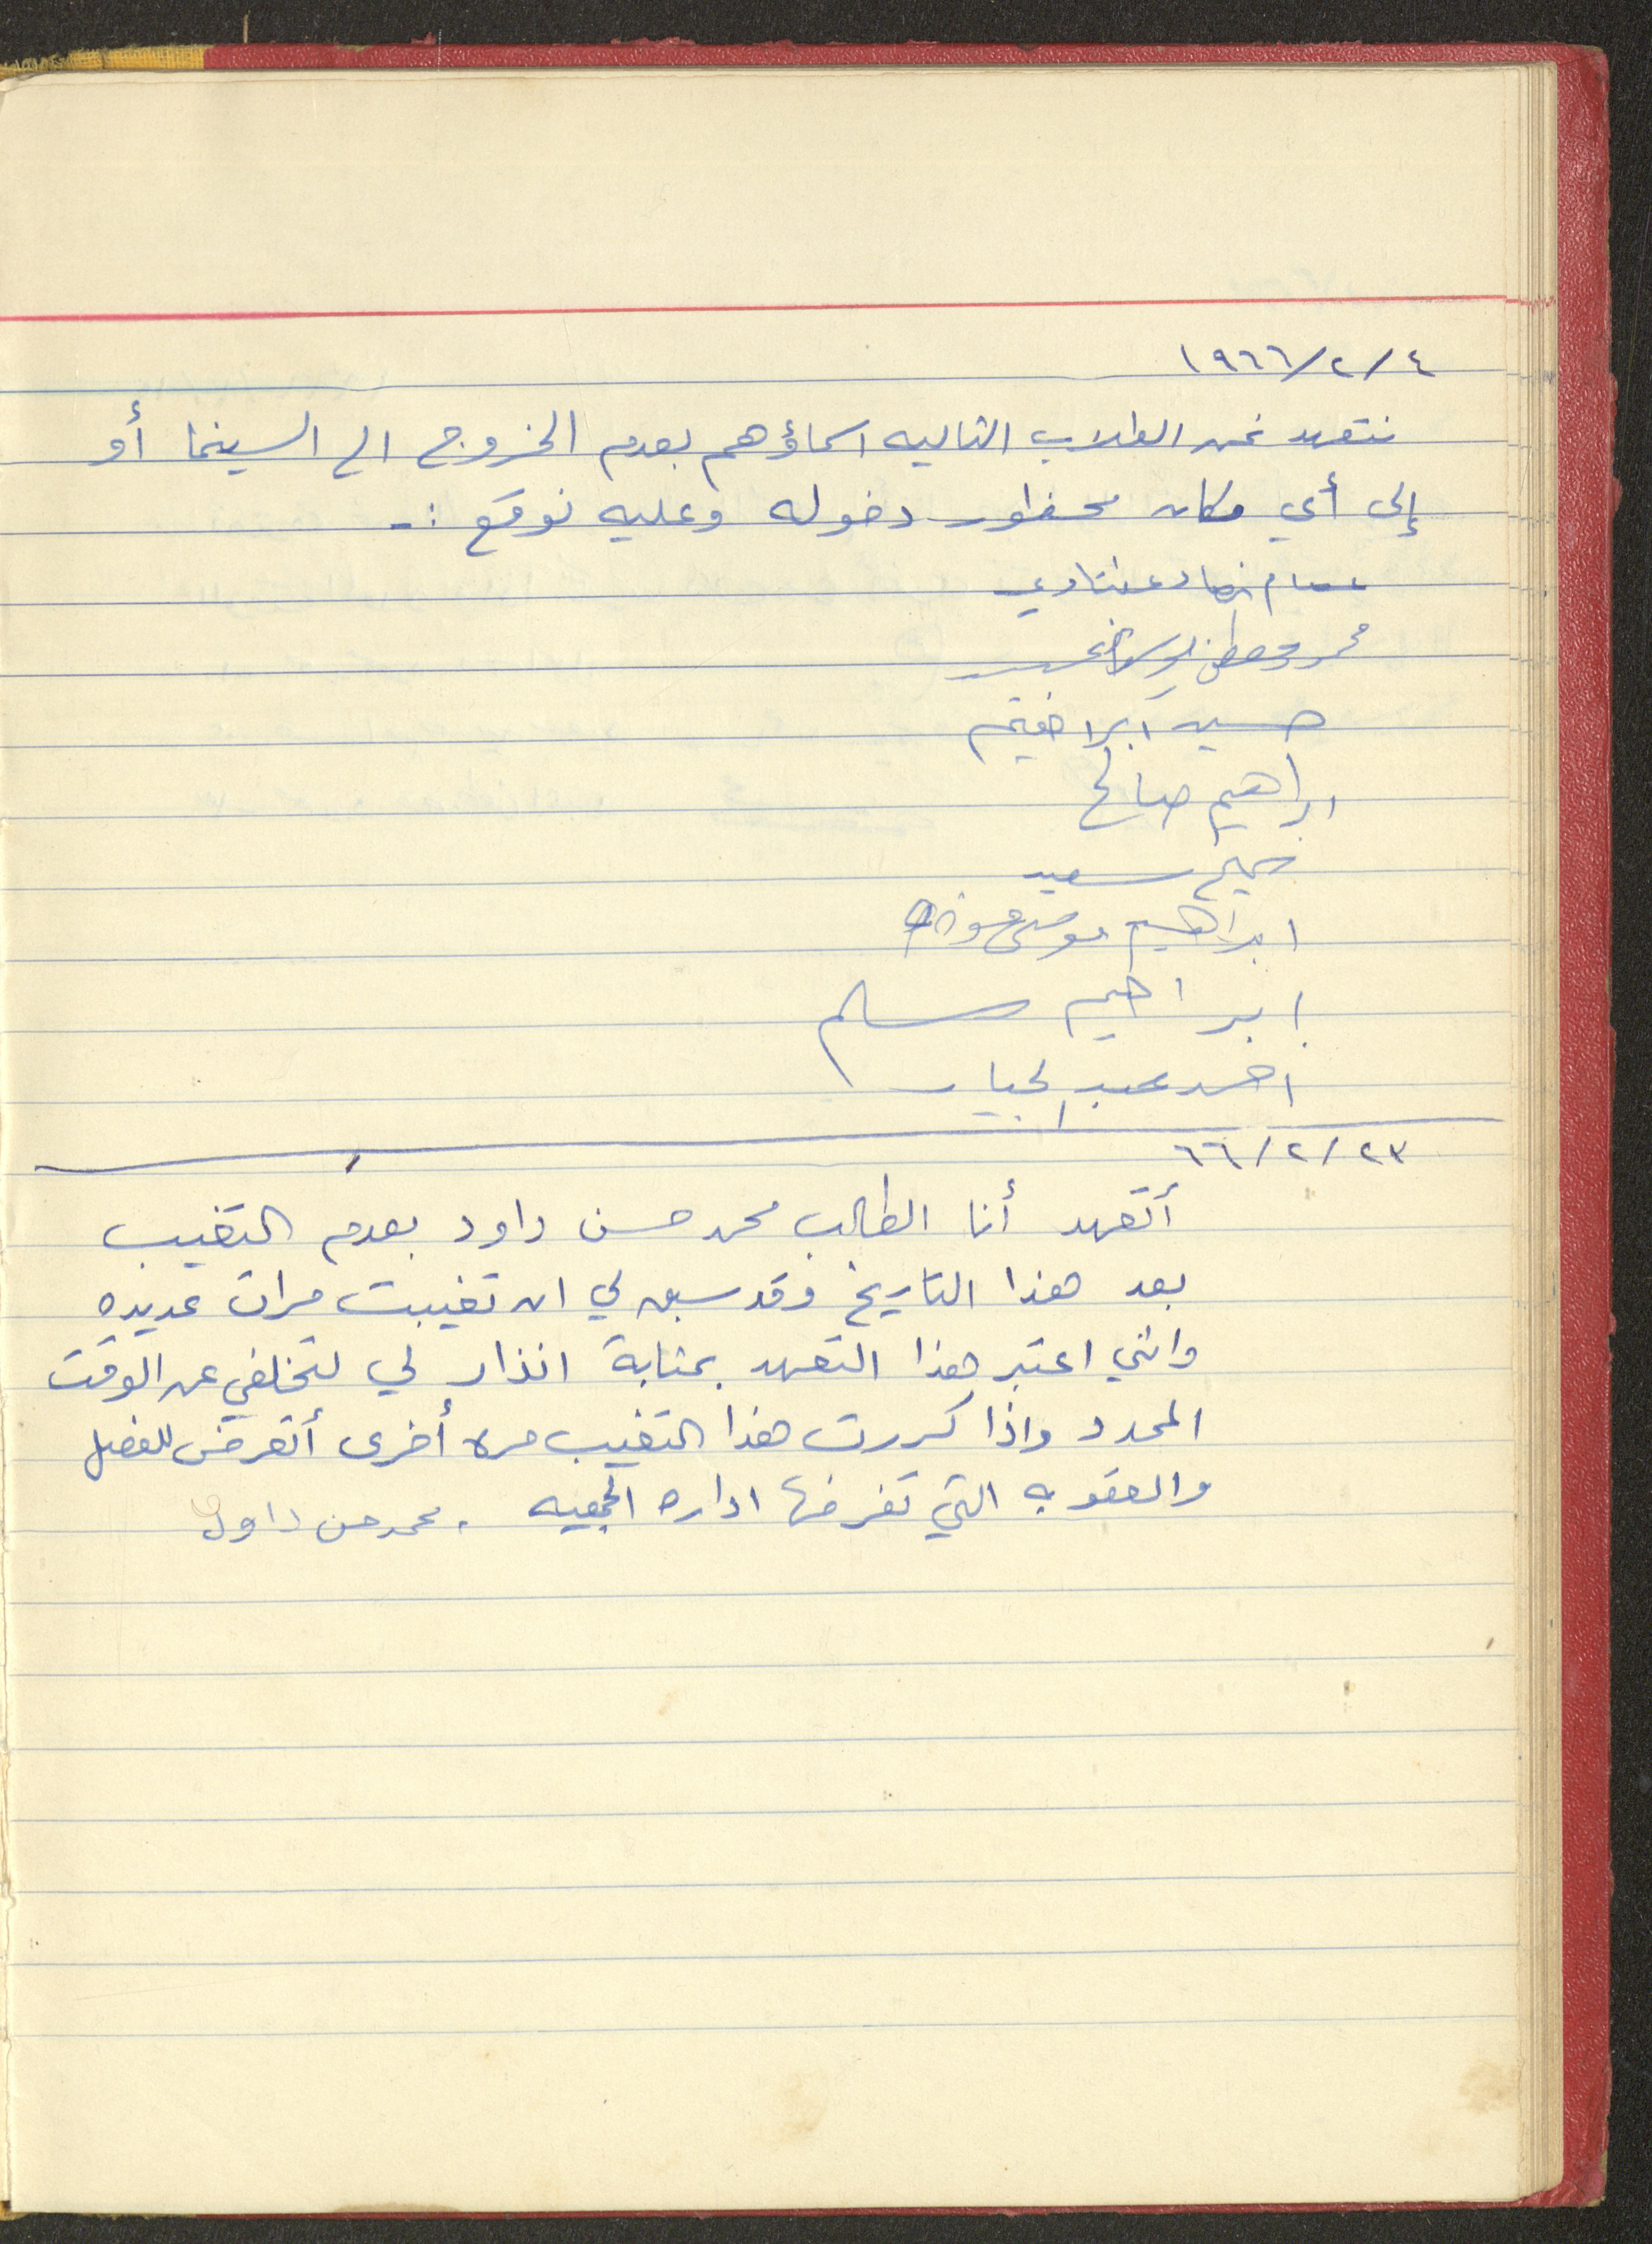 ١٩٦٦/٢/٤
نتعهد نحن الطلاب التاليه اسماؤهم بعدم الخروج الى السينما أو
إلى أي مكان محظور دخوله وعليه نوقع :-
عصام
محمد مصطفى
حسين ابراهيم
ابراهيم صالح
سعيد
ابراهيم موسى
ابراهيم سالم
احمد عبد الجبار
٦٦/٢/٢٣
أتعهد أنا الطالب محمد حسن داود بعدم التغيب
بعد هذا التاريخ وقد سبق لي ان تغيبت مرات عديده
وانني اعتبر هذا التعهد بمثابة انذار لي لتخلفي عن الوقت
المحدد واذا كررت هذا التغيب مره أخرى أتعرض للفصل
والعقوبه التي تفرضها اداره الجمعيه . محمد حسن داود